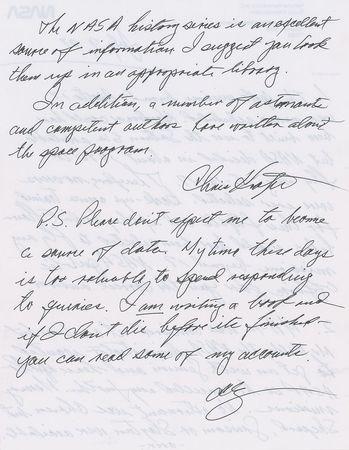 The NASA history series is an excellent
source of information. I suggest you look
them up in an appropriate library.
In addition, a number of astronauts
and competent authors have written about
the space program.
Chris Kraft
P.S. Please don't expect me to become
a source of data. My time these days
is too valuable to spend responding
to queries. I am writing a book and
if I don't die before its finished -
you can read some of my accounts.